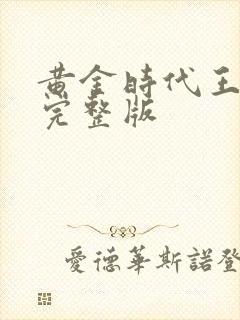 黃金時代王
完整版
愛德華斯諾登